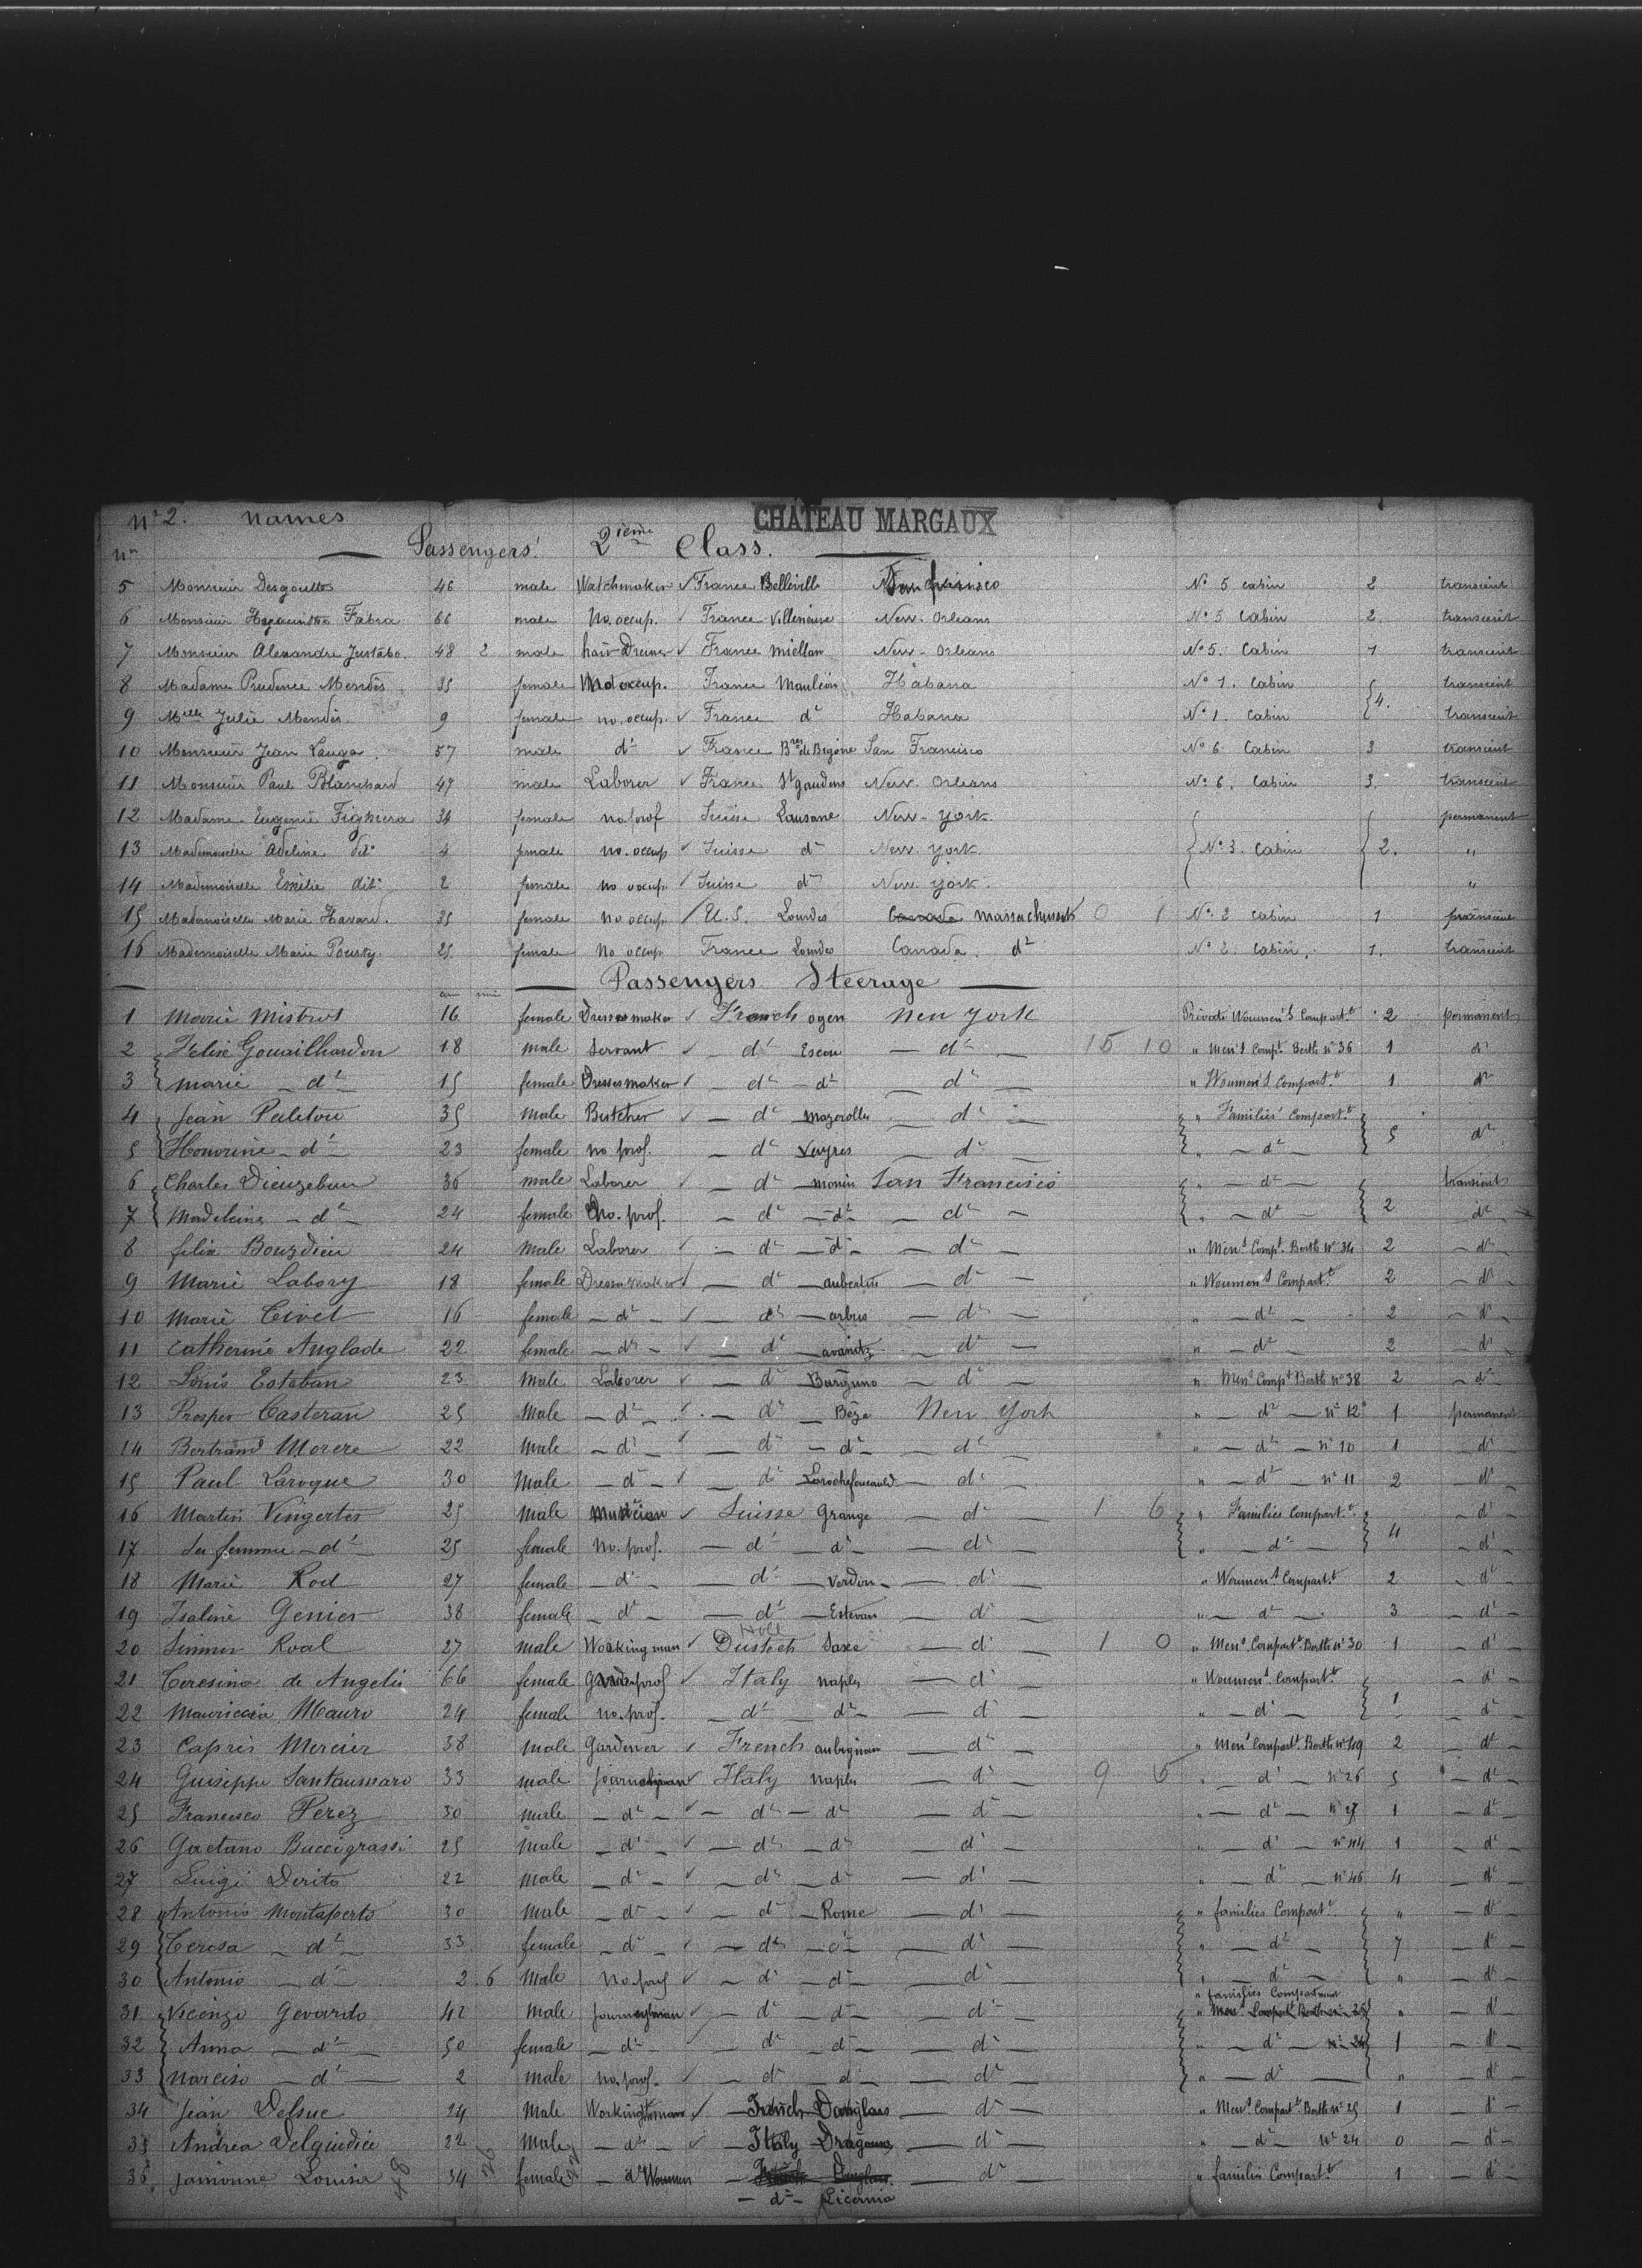 N° 2. names CHATEAU MARGAUX
N°
Passengers' 2ième Class.
5 Monsieur Desgouttes 46 male Watchmaker ✓ France Belleville San N° 5 cabin 2 transcient
6 Monsieur Fabra 66 male No. occup. ✓ France Villeneuve New-Orleans N° 5 Cabin 2. transcient
7 Monsieur Alexandre Justabo. 48 2 male hair-Dresser ✓ France Miellan New-Orleans N° 5. Cabin 1 transcient
8 Madame Prudence Mendès 35 female No occup. France Mauléon Habana N° 1. Cabin 4. transcient
9 Melle Julie Mendès 9 female no. occup. ✓ France d° Habana N° 1. Cabin transcient
10 Monsieur Jean Lauga 57 male d° ✓ France Bres de Bigorre San Francisco N° 6 Cabin 3 transcient
11 Monsieur Paul Blanchard 47 male Laborer ✓ France St gaudens New-Orleans N° 6. Cabin 3. transcient
12 Madame Eugenie Fighiera 34 female no. prof Suisse Lausane New-York. permanent
13 Mademoiselle Adeline dit° 4 female no. occup ✓ Suisse d° New-York. N° 3. Cabin 2. "
14 Mademoiselle Emilie dit° 2 female no occup. ✓ Suisse d° New-York. "
15 Mademoiselle Marie Havard. 35 female no occup. ✓ U.S. Lourdes Canada Massachusets 0 1 N° 2 cabin 1. transcient
16 Mademoiselle Marie Pourty. 25. female No occup. France Lourdes Canada. d° N° 2. Cabin. 1. transcient
Passengers Steerage
1 Marie Mistrot 16 female Dressmaker ✓ French ogen New York Private Woumen's Compartt 2 permanent
2 Felixe Gouailhardou 18 male Servant ✓ d° Escou d° 15 10 " Men's Compt Berth n° 36 1 d°
3 Marie d° 15 female Dressmaker ✓ d° d° d° " Woumen's Compartt 1 d°
4 Jean Paletou 35 Male Butcher ✓ d° Mazerolles d° " Families' Compartt
5 Honorine d° 23 female no prof. d° Veyres d° " d° 5 d°
6 Charles Dieuzebun 36 male Laborer ✓ d° monin San Francisco " d° transient
7 Madeleine d° 24 female No. prof. d° d° d° " d° 2 d°
8 felix Bourdieu 24 Male Laborer ✓ d° d° d° " Men's Compt Berth N° 34 2 d°
9 Marie Labory 18 female Dressmaker ✓ d° aubertin d° " Woumen's Compartt 2 d°
10 Marie Civet 16 female d° ✓ d° arbus d° " d° 2 d°
11 Catherine Anglade 22 female d° ✓ d° d° " d° 2 d°
12 Louis Estaban 23 Male Laborer ✓ d° d° " Men's Compt Berth n° 38 2 d°
13 Prosper Casteran 25 Male d° ✓ d° Bèze New York " d° N° 12 1 permanent
14 Bertrand Morere 22 Male d° ✓ d° d° d° " d° N° 10 1 d°
15 Paul Laroque 30 Male d° ✓ d° Larochefoucauld d° " d° N° 11 2 d°
16 Martin Vingertes 25 Male Musician ✓ Suisse Grange d° 1 6 " Families Compartt d°
17 sa femme d° 25 female No. prof. d° d° d° " d° 4 d°
18 Marie Rod 27 female d° d° Verdon d° " Woumen's Compartt 2 d°
19 Isaline Genier 38 female d° d° Estevan d° " d° 3 d°
20 Simmer Roal 27 male Workingman ✓ Dustech Holl Saxe d° 1 0 " Mens Compartt Berth n° 30 1 d°
21 Ceresina de Angelis 66 female prof ✓ Italy naples d° " Woumens Compartt d°
22 Mauro 24 female no. prof. d° d° d° " d° 1 d°
23 Capris Mercier 38 male Gardener ✓ French aubignan d° " Mens Compartt Berth n° 49 2 d°
24 Guiseppe Santaumaro 33 male ✓ Italy naples d° 9 5 " d° N° 26 5 d°
25 Francisco Perez 30 male d° ✓ d° d° d° " d° N° 27 1 d°
26 Gaetano Buccigrassi 25 male d° ✓ d° d° d° " d° N° 44 1 d°
27 Luigi Derito 22 Male d° ✓ d° d° d° " d° N° 46 4 d°
28 Antonio Montaperto 30 Male d° ✓ d° Rome d° " families Compartt " d°
29 Ceresa d° 33 female d° ✓ d° d° d° " d° 7 d°
30 Antonio d° 2.6 Male No. prof ✓ d° d° d° " d° " d°
" families Compartment
31 Vicenzo Gevardo 42 Male Journeyman ✓ d° d° d° " Mens Compartt Berth n° 25 " d°
32 Anna d° 50 female d° d° d° d° " d° N° 24 1 d°
33 Narciso d° 2 male no. prof. ✓ d° d° d° " d° " d°
34 Jean Delsuc 24 Male Workingman ✓ French Danglars d° " Mens Compartt Berth n° 25 1 d°
35 Andrea Delguidice 22 Male d° ✓ Italy d° " d° N° 24 0 d°
36 Jamonne Louisa 34 female d° Woumen d° " families Compartt 1 d°
d° Licernia